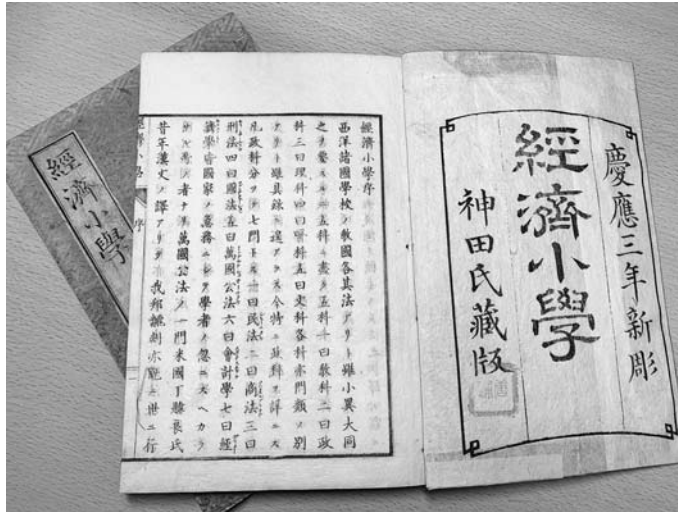 慶應三年新彫
經濟小學
神田氏藏版
經濟小學序
西洋諸國學校ノ教國各其法アリト雖小異大同
之ヲ要スルニ五科ニ盡ク五科一曰教科二曰政
科三曰理科四曰醫科五曰文科各科亦門類ヲ別
雖具錄ニ遑アラス今特ニ政科ヲ詳ニス
凡政科分テ七門トス一曰民法二曰商法三曰
刑法四曰國法五曰萬國公法六曰會計學七曰經
濟學皆國家ノ急務ニシテ學者ノ忽ニスヘカラ
者ナリ萬國公法ノ一門米國丁韙良氏
昔年漢文ノ譯アリ我邦飜刻亦既ニ世ニ行
經濟小學
序
經濟小學